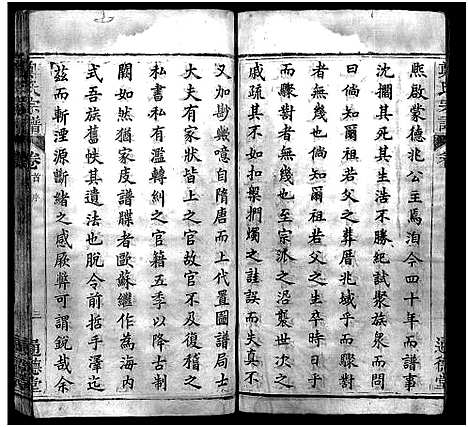 熙啟蒙德兆公主焉洎今四十年而譜事
沈擱其死生浩不勝紀試聚族眾而問
曰倘知爾祖若父之葬厝兆域乎而驟對
者無幾也倘知爾祖若父之生卒時日乎
而驟對者無幾也至宗派之沿襲世次之
戚疏其不如扣槃捫燭之詿誤而失真不
又加尠歟噫自隋唐而上代置圖譜局士
大夫有家狀皆上之官故官不及復稽之
私書私有濫轉糾之官籍五季以降古制
闕如然猶家皮譜牒者歐蘇繼作為海內
式吾族舊帙其遺法也脫令前哲手澤迄
茲而斬湮源斷緒之感厥弊可謂銳哉余
宗譜
卷首
序
三
通德堂
氏宗譜
通德堂